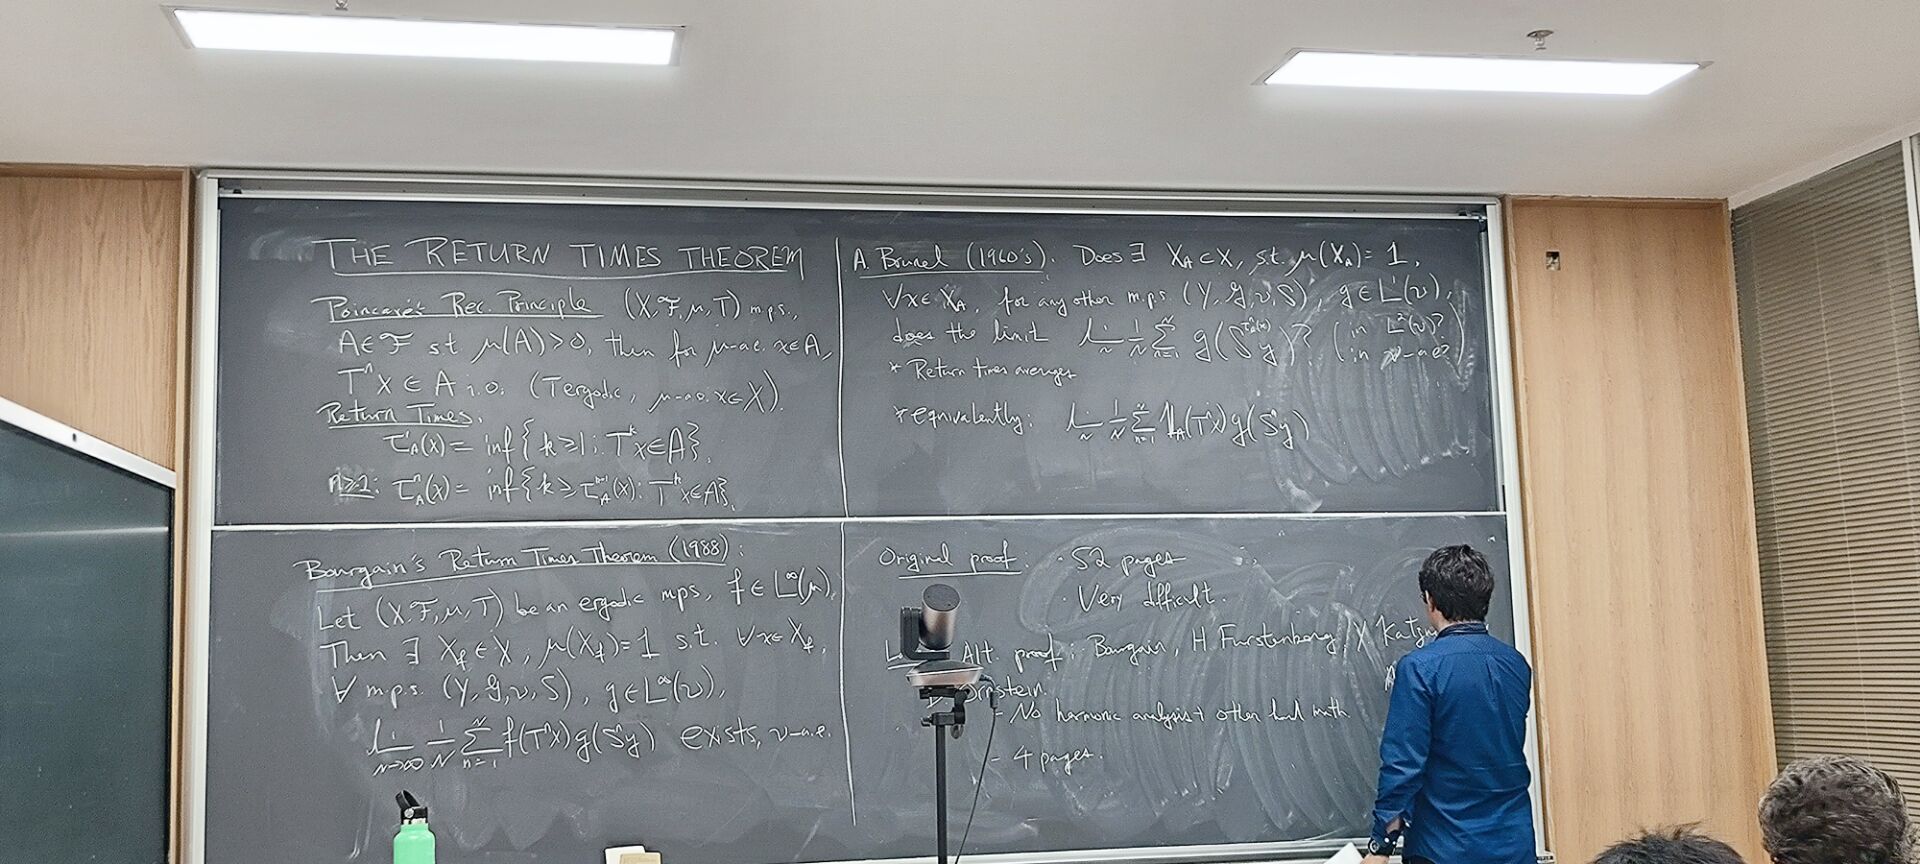 THE RETURN TIMES THEOREM
Poincaré's Rec. Principle (X, ℱ, μ, T) mps.,
A∈ℱ st μ(A)>0, then for μ-a.e. x∈A,
Tⁿx ∈ A i.o. (T ergodic, μ-a.e. x∈X).
Return Times.
τ_A(x) = inf{k≥1 : Tᵏx∈A},
n≥2: τ_A^n(x) = inf{k≥τ_A^{n-1}(x) : Tᵏx∈A}.
A. Brunel (1960's). Does ∃ X_A⊂X, s.t. μ(X_A)=1,
∀x∈X_A, for any other m.p.s (Y, 𝒢, ν, S), g∈L¹(ν),
does the limit lim_N 1/N Σ_{n=1}^N g(S^{τ_A^n(x)}y)? (in L²(ν)?
in ν-a.e?)
* Return times averages
* equivalently: lim_N 1/N Σ_{n=1}^N 𝟙_A(Tⁿx)g(Sⁿy)
Bourgain's Return Times Theorem (1988):
Let (X, ℱ, μ, T) be an ergodic mps, f∈L^∞(μ).
Then ∃ X_f ∈ X, μ(X_f)=1 s.t. ∀x∈X_f,
∀ m.p.s. (Y, 𝒢, ν, S), g∈L^∞(ν),
lim_{N→∞} 1/N Σ_{n=1}^N f(Tⁿx)g(Sⁿy) exists, ν-a.e.
Original proof: · 52 pages
· Very difficult.
Alt. proof: Bourgain, H. Furstenberg, Y Katzn
Ornstein.
- No harmonic analysis + other hard math
- 4 pages.